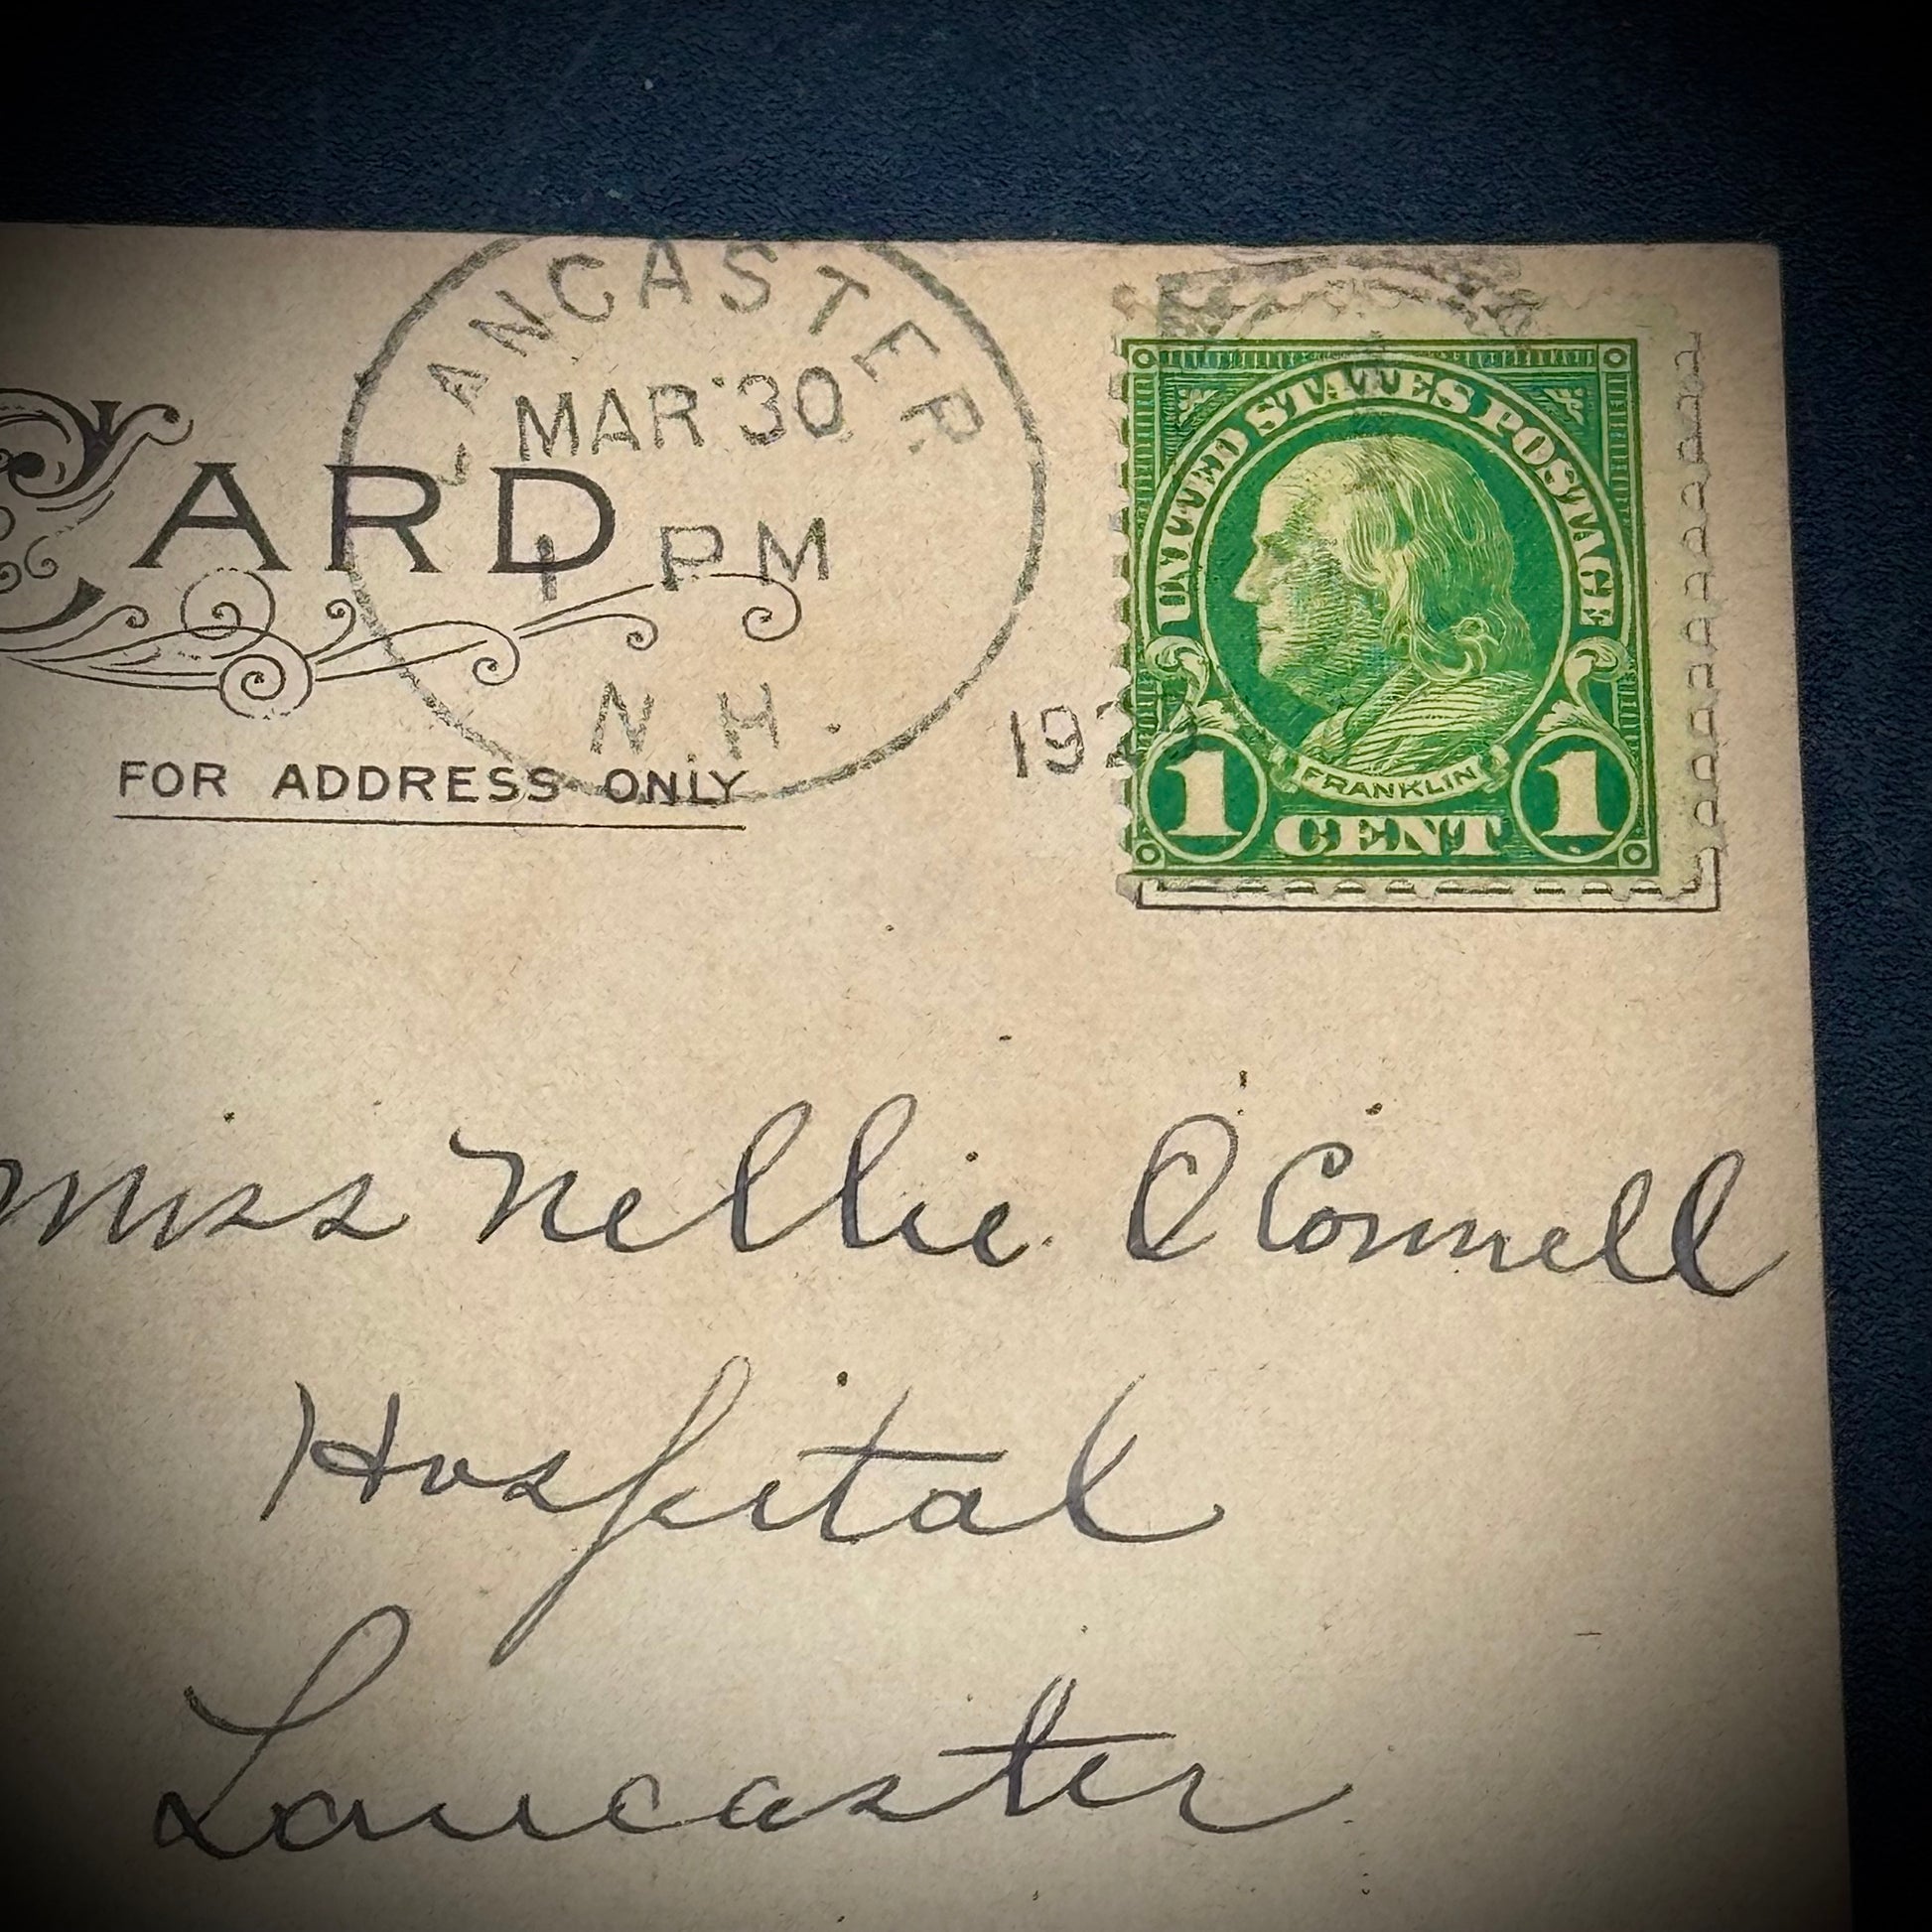 LANCASTER
MAR 30
1 PM
N.H.
192
ARD
FOR ADDRESS ONLY
UNITED STATES POSTAGE
FRANKLIN
1 CENT 1
Miss Nellie O'Connell
Hospital
Lancaster